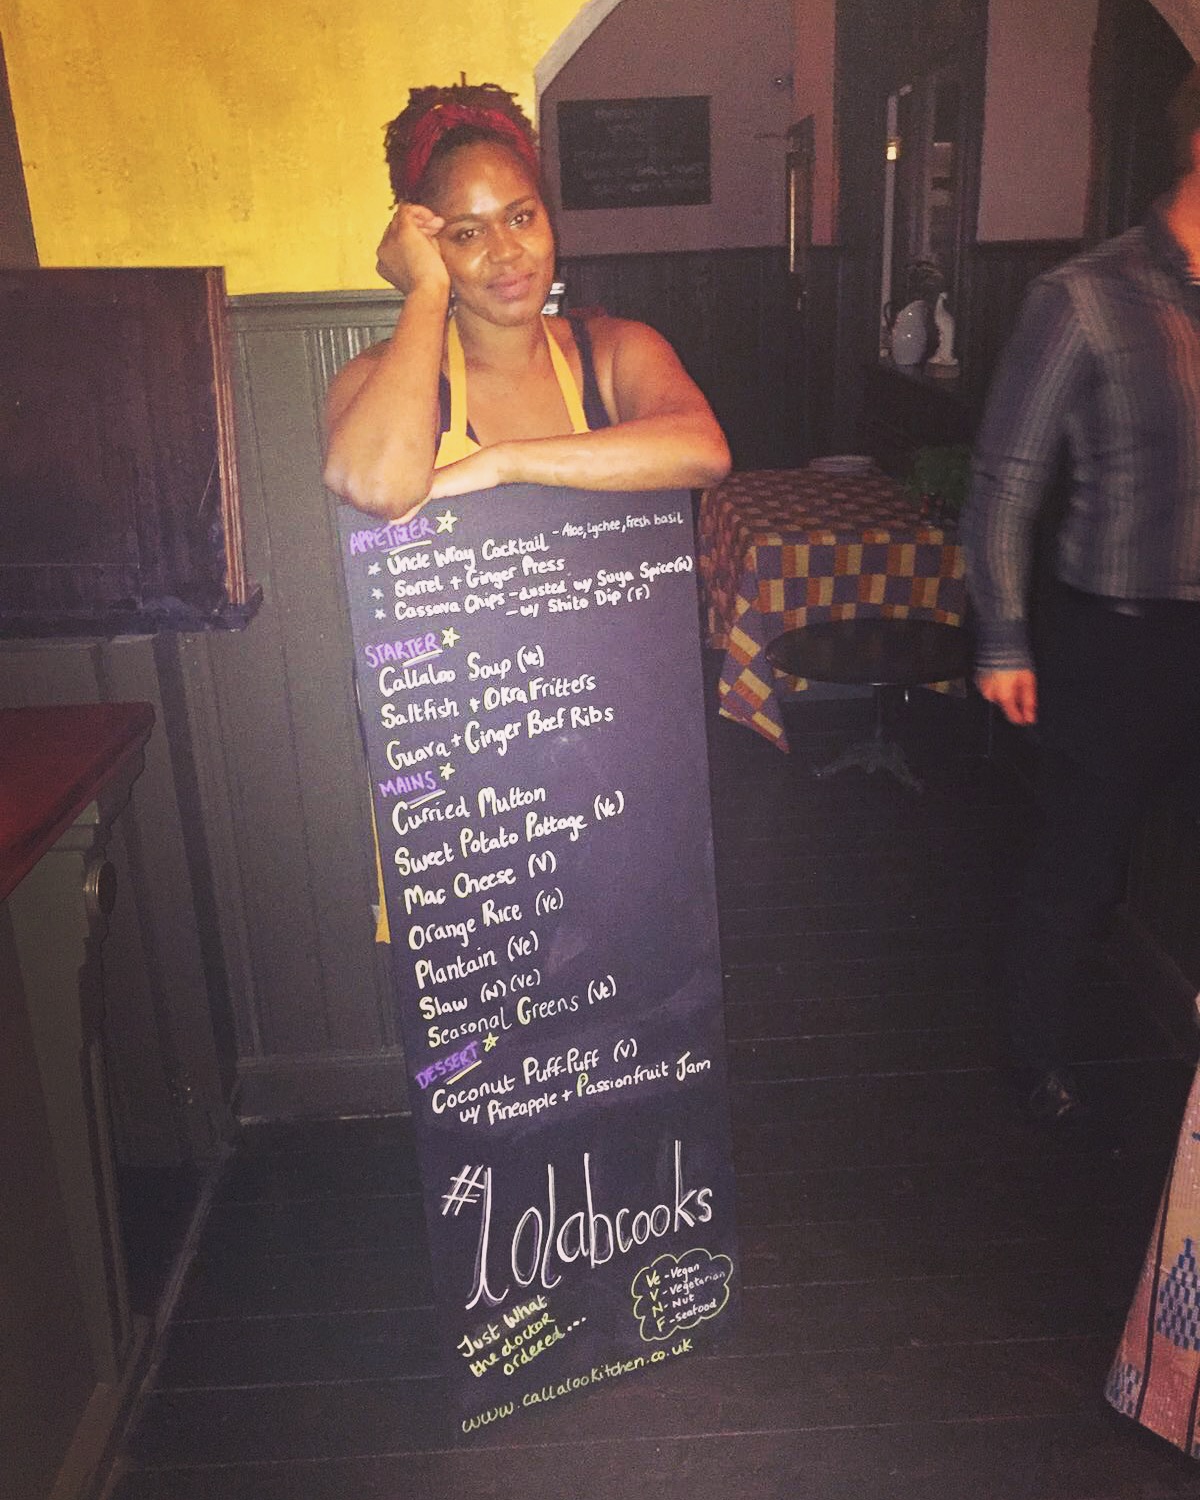 APPETIZER
Uncle Wray Cocktail - Aloe, Lychee, Fresh basil
Sorrel + Ginger Press
Cassava Chips - dusted w/ Suya Spice (N)
- w/ Shito Dip (F)
STARTER
Callaloo Soup (Ve)
Saltfish + Okra Fritters
Guava + Ginger Beef Ribs
MAINS
Curried Mutton
Sweet Potato Pottage (Ve)
Mac Cheese (V)
Orange Rice (Ve)
Plantain (Ve)
Slaw (N) (Ve)
Seasonal Greens (Ve)
DESSERT
Coconut Puff-Puff (V)
w/ Pineapple + Passionfruit Jam
#Lolabcooks
Ve - Vegan
V - Vegetarian
N - Nut
F - Seafood
Just What
the doctor
ordered...
www.callalookitchen.co.uk